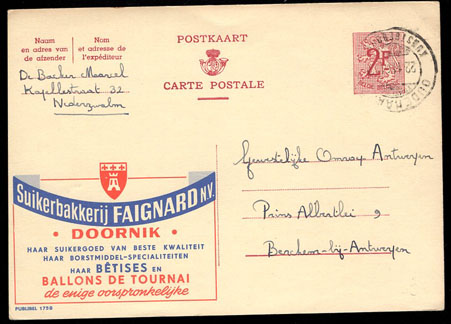 Naam
en adres van
de afzender
Nom
et adresse de
l'expéditeur
De Backer Marcel
Kapellestraat 32
Nederzwalm
POSTKAART
CARTE POSTALE
2F
Gewestelijke Omroep Antwerpen
Prins Albertlei 9
Berchem-bij-Antwerpen
Suikerbakkerij FAIGNARD N.V.
• DOORNIK •
HAAR SUIKERGOED VAN BESTE KWALITEIT
HAAR BORSTMIDDEL-SPECIALITEITEN
HAAR BÊTISES EN
BALLONS DE TOURNAI
de enige oorspronkelijke
PUBLIBEL 1758